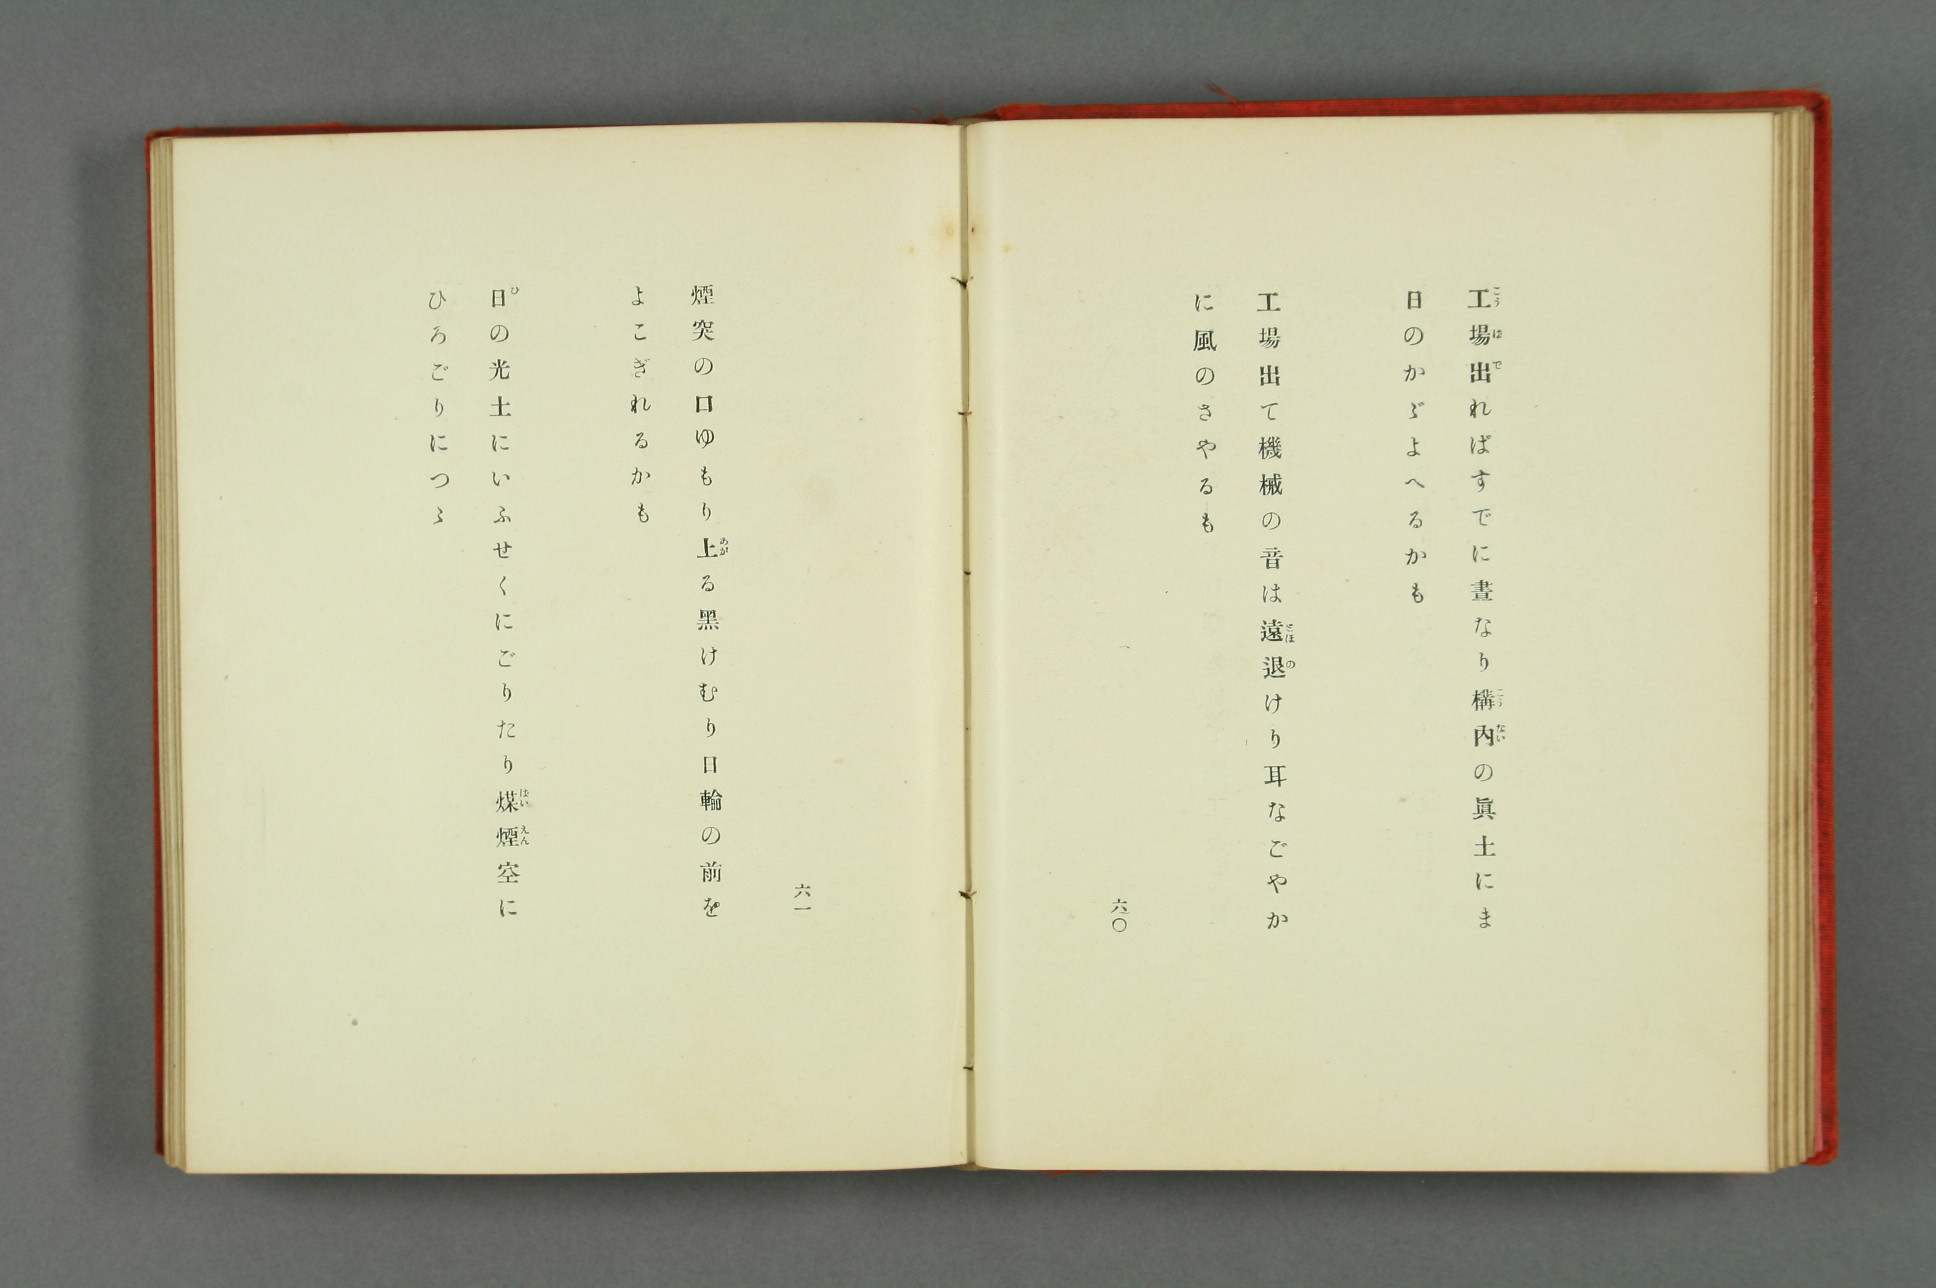 工場出ればすでに晝なり構内の眞土にま
日のかゞよへるかも
工場出て機械の音は遠退けり耳なごやか
に風のさやるも
六〇
煙突の口ゆもり上る黑けむり日輪の前を
よこぎれるかも
日の光土にいふせくにごりたり煤煙空に
ひろごりにつゝ
六一